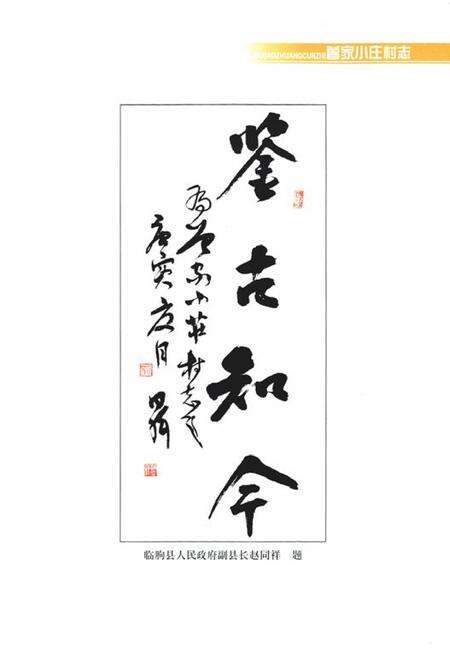 ZHUANGCUNZHI 曾家小庄村志
鑒古知今
为曾家小莊村志
庚寅夏月
临朐县人民政府副县长赵同祥 题